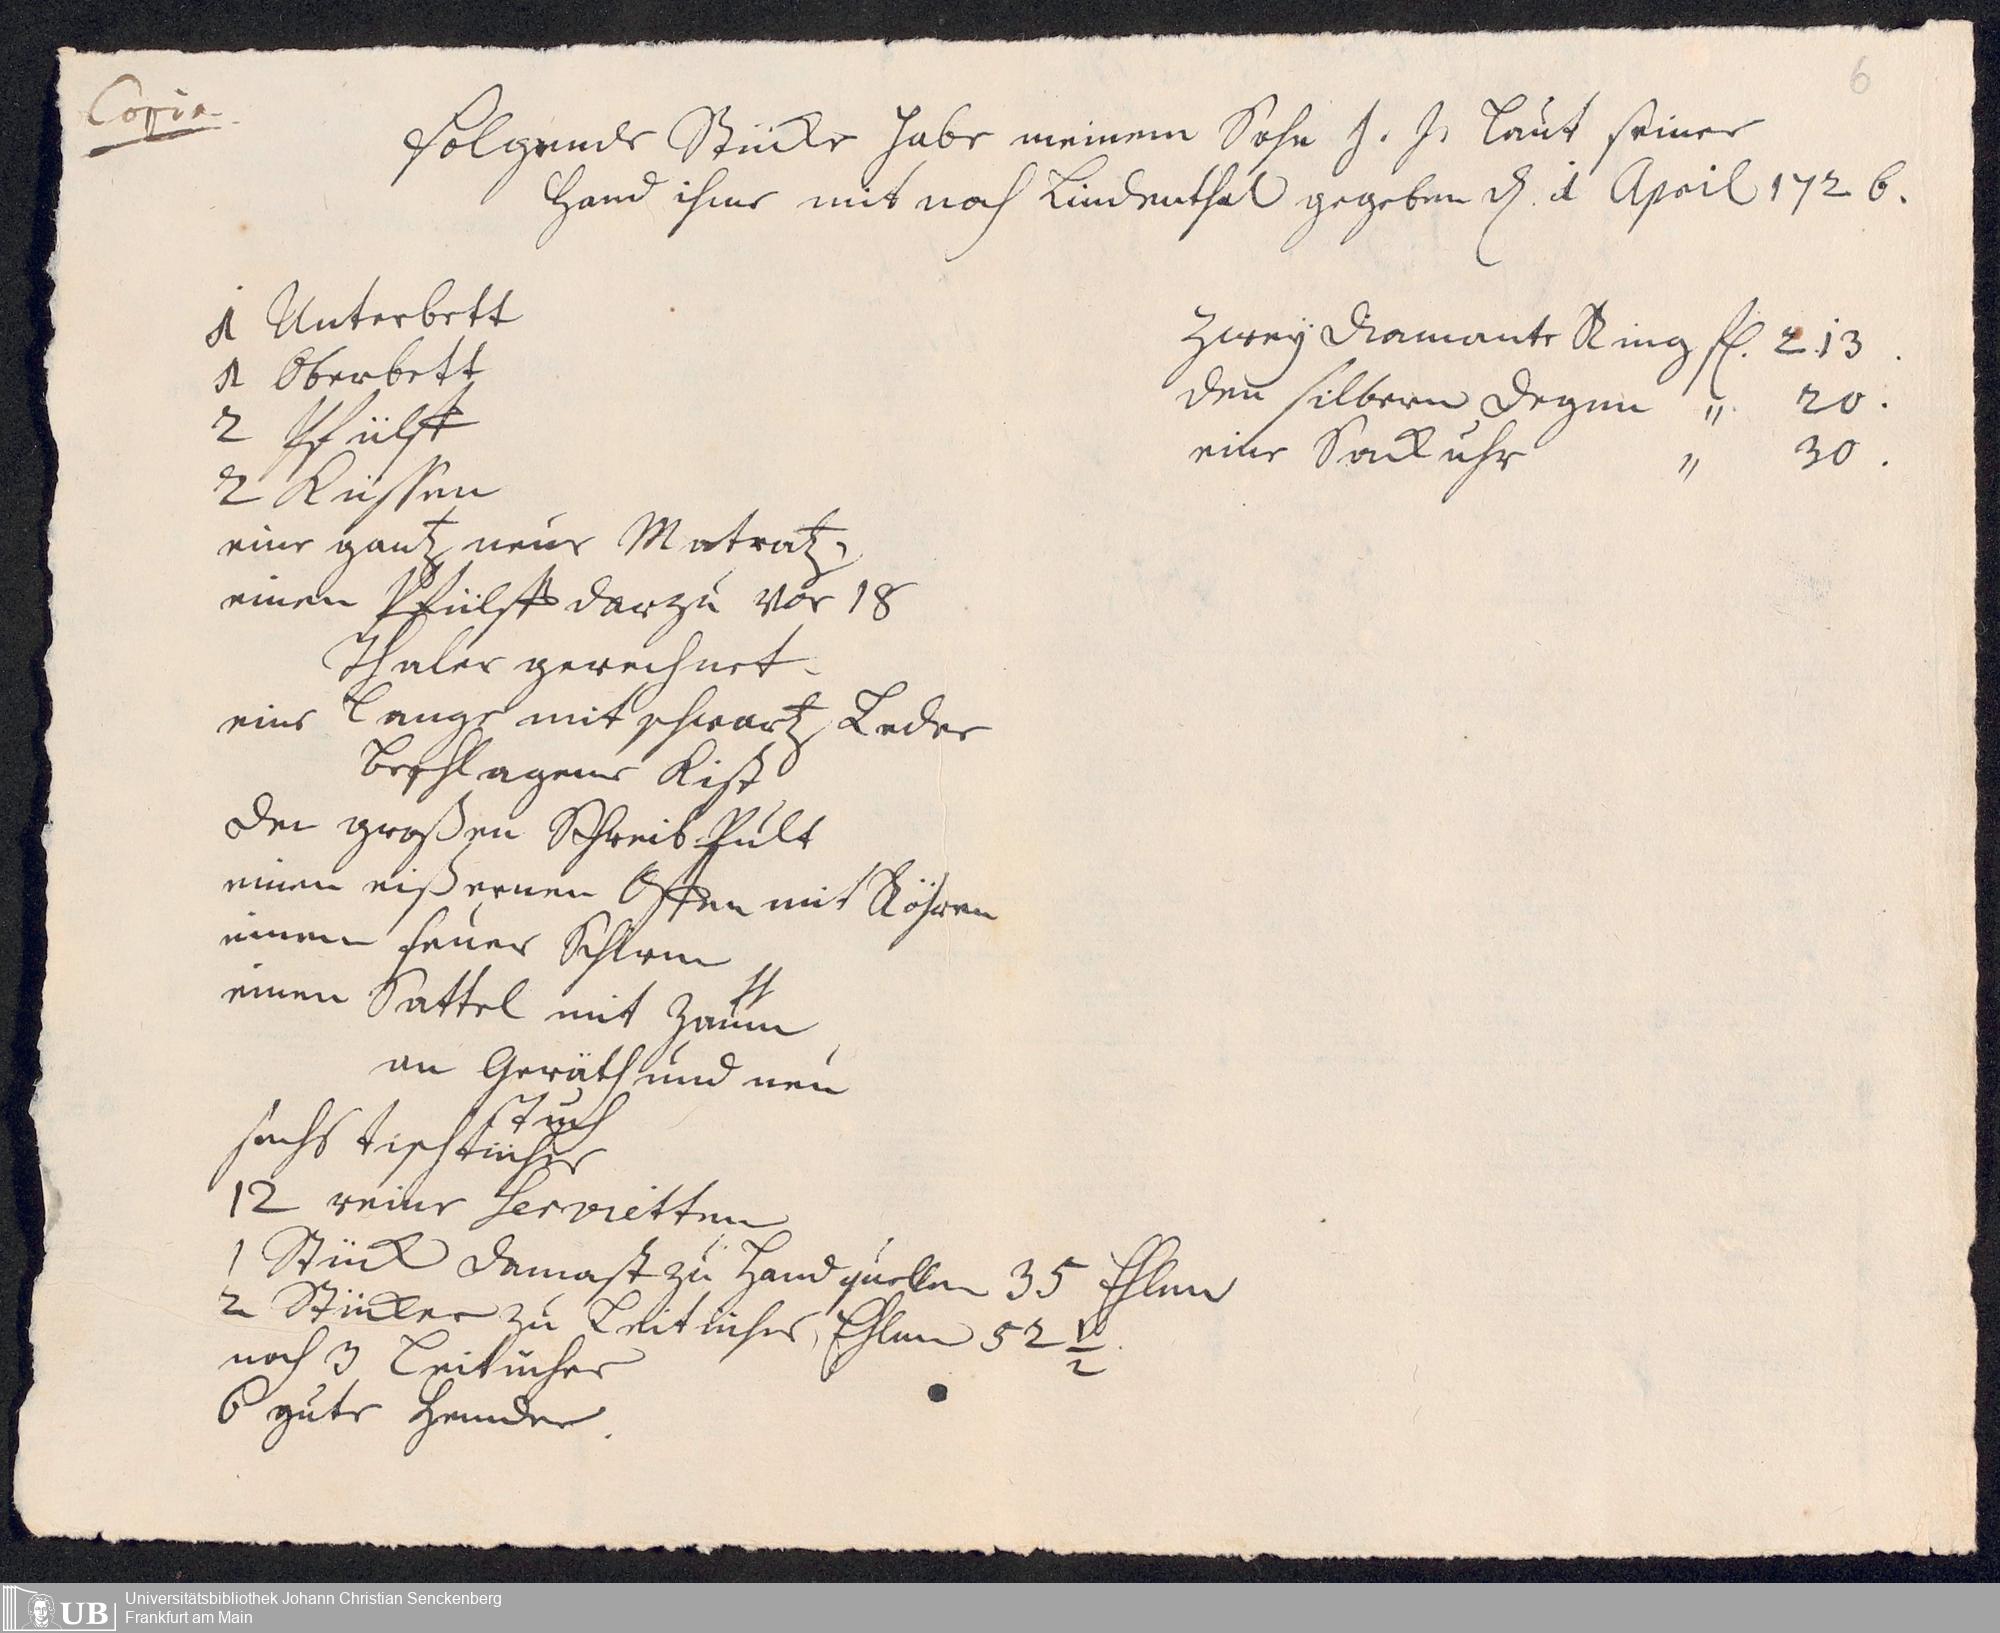 Copia
6
folgende Stücke habe meinem Sohn J. J. laut seiner
Hand ihme mit nach Lindenthal gegeben d. 1 April 1726.
1 Unterbett
1 Oberbett
2 Pfülff
2 Küssen
eine gantz neue Matratz,
einen Pfülff darzu vor 18
Thaler gerechnet.
eine lange mit schwartz Leder
beschlagene Kist
den großen Schreib-Pult
einen eißernen Offen mit Röhren
einen feuer Schirm
einen Sattel mit Zaum
an Geräth und neu
tuch
sechs tischtücher
12 reine Servietten
1 Stück Damast zu Handquellen 35 Ehlen
2 Stücker zu Leitücher, Ehlen 52 1/2.
noch 3 Leitücher
6 gute Hemder.
Zwey Diamante Ring fl. 213.
den silbern Degen " 20.
eine Sackuhr " 30.
UB
Universitätsbibliothek Johann Christian Senckenberg
Frankfurt am Main